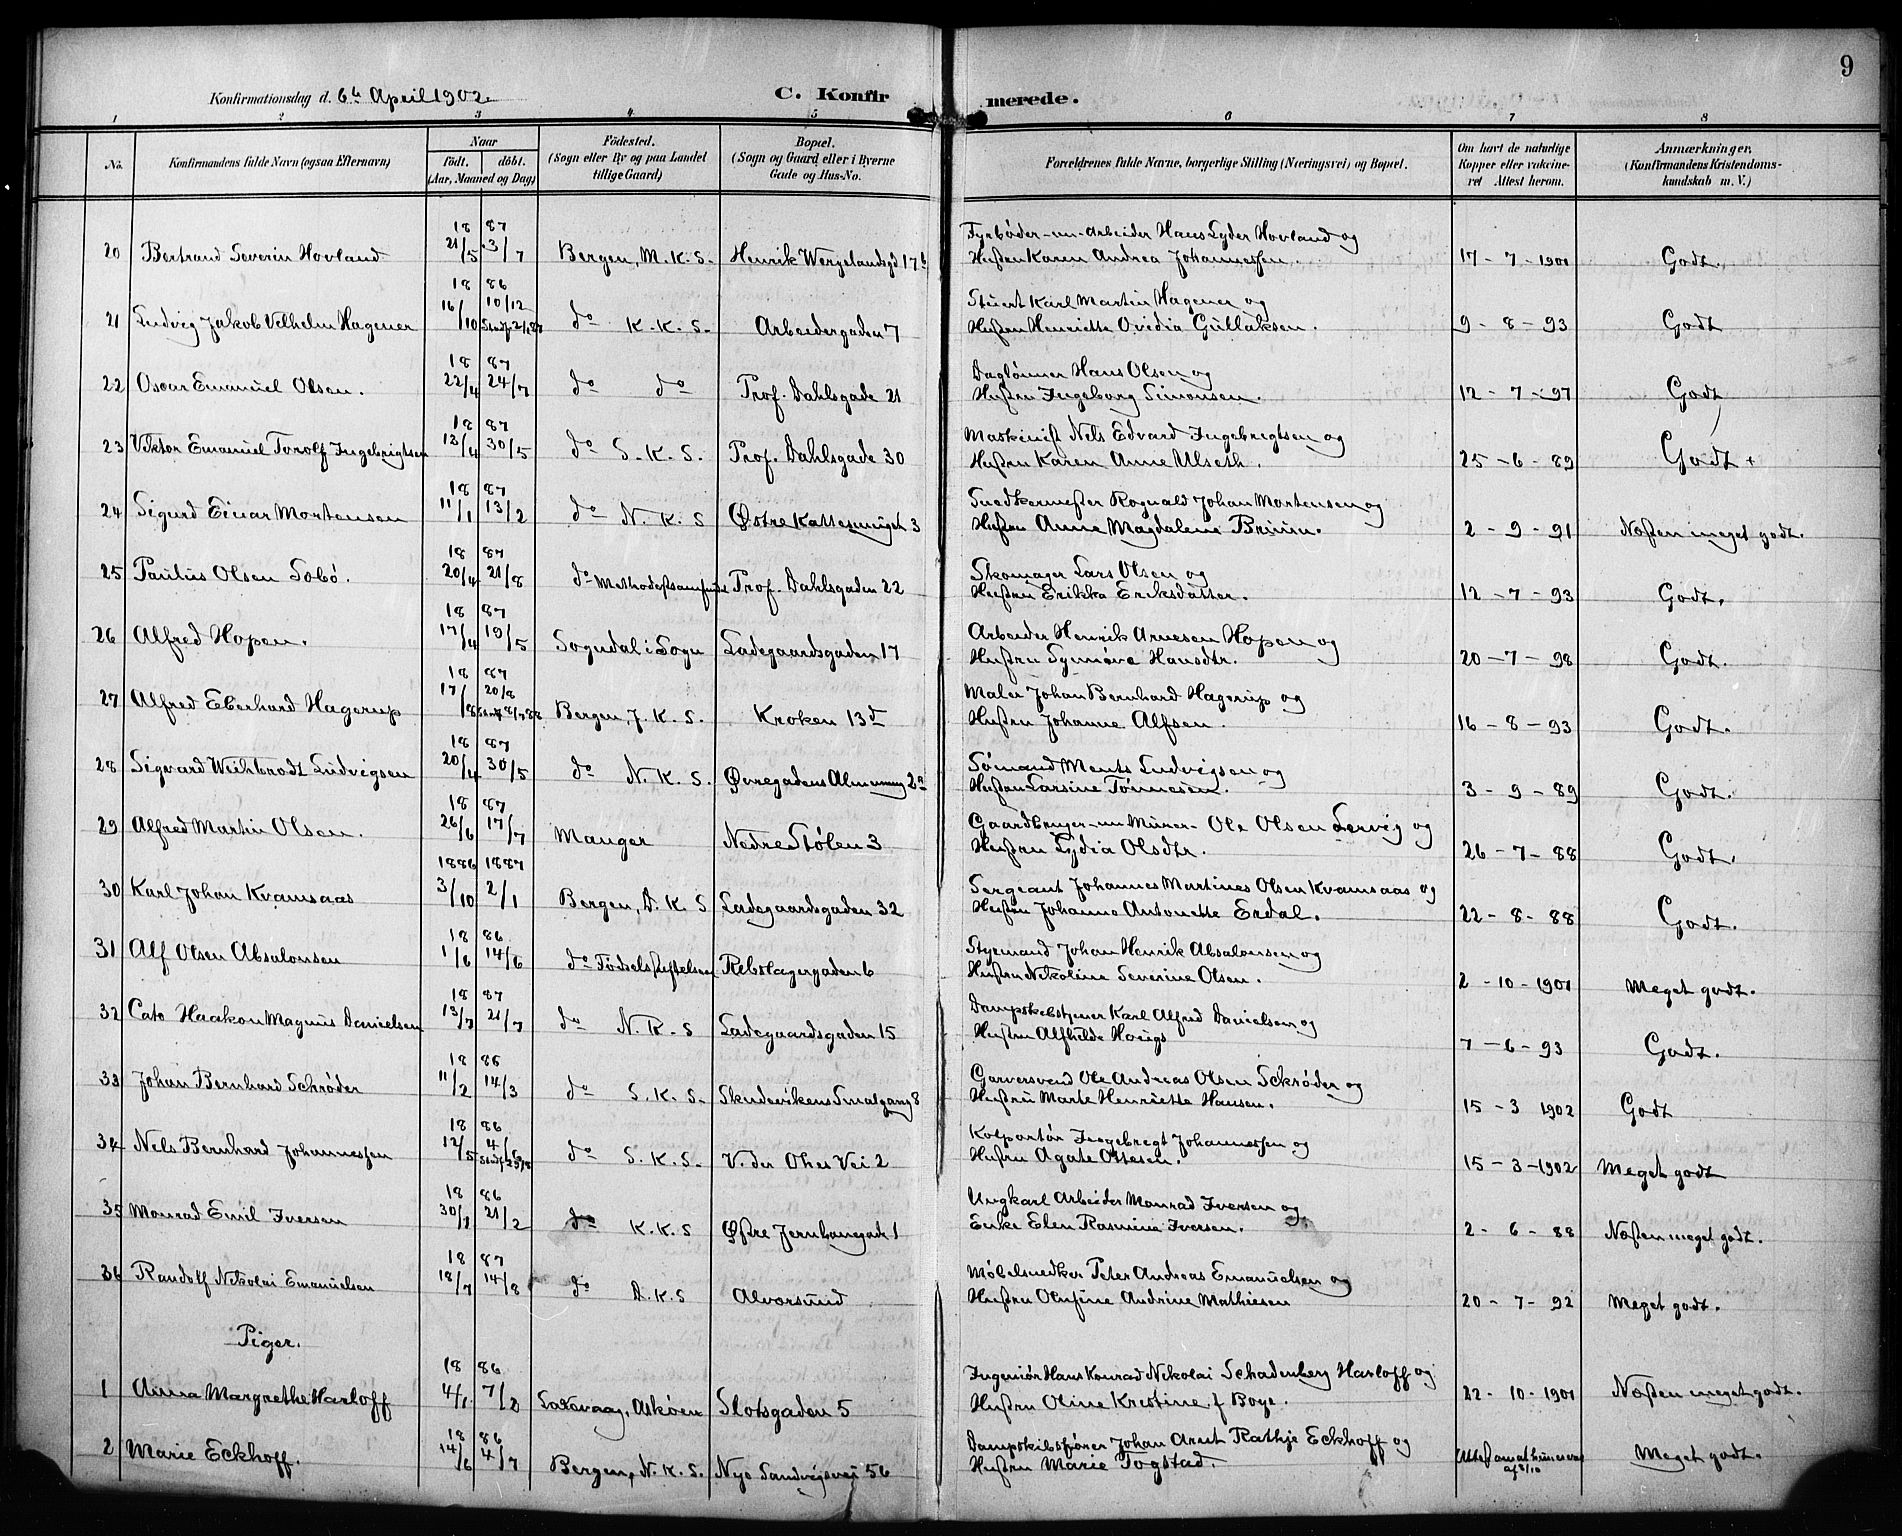 9
Konfirmationsdag d. 6te April 1902.
C. Konfirmerede.
1 2 3 4 5 6 7 8
No. Konfirmandens fulde Navn (ogsaa Efternavn) Naar födt. döbt. (Aar, Maaned og Dag) Födested. (Sogn eller By og paa Landet tillige Gaard) Bopæl. (Sogn og Gaard, eller i Byerne Gade og Hus-No. Forældrenes fulde Navne, borgerlige Stilling (Næringsvei) og Bopæl. Om havt de naturlige Kopper eller vakcineret Attest herom. Anmærkninger, (Konfirmandens Kristendomskundskab m. V.)
18 87
20 Bertrand Severin Hovland 21/5 3/7 Bergen, M. K. S. Henrik Wergelandsgd 17b
Fyrbøder-nu-Arbeider Hans Lyder Hovland og
Hustru Karen Andrea Johannessen. 17-7-1901 Godt.
18 86
21 Ludvig Jakob Vilhelm Hagener 16/10 10/12 do K. K. S. Arbeidergaden 7
Stuert Karl Martin Hagener og
Hustru Henriette Ovidia Gullaksen. 9-8-93 Godt
18 87
22 Oscar Emanuel Olsen. 22/4 24/7 do do Prof. Dahlsgade 21
Daglönner Hans Olsen og
Hustru Ingeborg Simonsen. 12-7-97 Godt
18 87
23 Viktor Emanuel Torolf Ingebrigtsen 13/4 30/5 do S. K. S. Prof. Dahlsgade 30
Maskinist Nels Edvard Ingebrigtsen og
Hustru Karen Anne Ulseth. 25-6-89 Godt +
18 87
24 Sigurd Einar Mortensen 11/1 13/2 do N. K. S Østre Kattesmuget 3
Snedkermester Rognald Johan Mortensen og
Hustru Anne Magdalene Bruun. 2-9-91 Næsten meget godt.
18 87
25 Paulus Olsen Sobö. 20/4 21/8 do Methodistsamfund Prof. Dahlsgaden 22
Skomager Lars Olsen og
Hustru Erikka Eriksdatter. 12-7-93 Godt.
18 87
26 Alfred Hopen. 17/4 19/5 Sogndal i Sogn Ladegaardsgaden 17
Arbeider Henrik Arnesen Hopen og
Hustru Synnöve Hansdtr. 20-7-98 Godt.
18 87
27 Alfred Eberhard Hagerup 17/8 20/8 Bergen, J. K. S. Kroken 13d
Maler Johan Bernhard Hagerup og
Hustru Johanne Alfsen. 16-8-93 Godt.
18 87
28 Sigvard Weihbrodt Ludvigsen 20/4 30/5 do N. K. S. Øvregadens Almenning 2a
Sömand Ments Ludvigsen og
Hustru Larsine Tönnesen. 3-9-89 Godt.
18 87
29 Alfred Martin Olsen. 26/6 17/7 Manger Nedre Stölen 3
Gaardbruger-nu Murer- Ole Olsen Lervig og
Hustru Lydia Olsdtr. 26-7-88 Godt.
1886 1887
30 Karl Johan Kvamsaas 3/10 2/1 Bergen, D. K. S Ladegaardsgaden 32
Sergeant Johannes Martines Olsen Kvamsaas og
Hustru Johanne Antonette Erdal. 22-8-88 Godt.
18 86
31 Alf Olsen Absalonsen 1/6 14/6 do Födselsstiftelsen Rebslagergaden 6
Styrmand Johan Henrik Absalonsen og
Hustru Nikoline Severine Olsen. 2-10-1901 Meget godt.
18 87
32 Cato Haakon Magnus Danielsen 13/7 21/7 do N. K. S Ladegaardsgaden 15
Dampskibstjener Karl Alfred Danielsen og
Hustru Alfhilde Hougs 7-6-93 Godt.
18 86
33 Johan Bernhard Schröder 11/2 14/3 do S. K. S. Skudevikens Smalgang 8
Garversvend Ole Andreas Olsen Schröder og
Hustru Marte Henriette Hansen. 15-3 1902 Godt
18 86
34 Nels Bernhard Johannessen 12/5 4/6 do S. K. S. V. der Ohes Vei 2
Kolportör Ingebregt Johannessen og
Hustru Agate Ottesen. 15-3-1902 Meget godt
18 86
35 Monrad Emil Iversen 30/1 21/2 do K. K. S Østre Jernbanegade 1
Ungkarl Arbeider Monrad Iversen og
Enke Elen Rasmine Iversen. 2-6-88 Næsten meget godt.
18 87
36 Randolf Nikolai Emanuelsen 18/7 14/8 do D. K. S Alvorsund
Möbelsnedker Peter Andreas Emanuelsen og
Hustru Olufine Andrine Mathiesen 20-7-92 Meget godt.
Piger.
18 86
1 Anna Margrethe Harloff 4/1 7/2 Askøen Slotsgaden 5
Ingeniör Hans Konrad Nikolai Schadenberg Harloff og
Hustru Oline Kristine f Boye. 22-10-1901 Næsten meget godt.
18 86
2 Marie Eckhoff. 14/6 4/7 Bergen, N. K. S. Nye Sandvigsvei 56
Dampskibsförer Johan Arnt Rathje Eckhoff og
Hustru Marie Togstad. Meget godt.